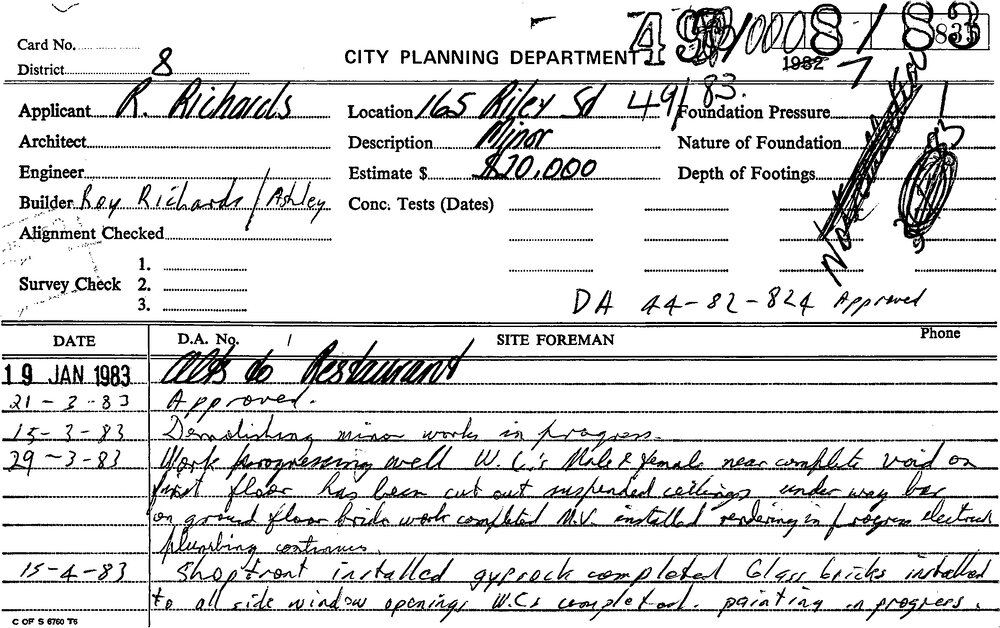 Card No.
District 8
CITY PLANNING DEPARTMENT 8/83
1982
Applicant R. Richards Location 165 Riley St 49/83. Foundation Pressure
Architect Description Minor Nature of Foundation
Engineer Estimate $ $20,000 Depth of Footings
Builder Roy Richards / Ashley Conc. Tests (Dates)
Alignment Checked
Survey Check 1.
2.
3.
DA 44-82-824 Approved
DATE D.A. No. SITE FOREMAN Phone
19 JAN 1983 Alts to Restaurant
21-3-83 Approved.
15-3-83 Demolishing minor works in progress.
29-3-83 Work progressing well W.C.'s Male & female near complete void on
first floor has been cut out suspended ceilings under way bar
on ground floor brick work completed M.V. installed rendering in progress electrical
plumbing continues.
15-4-83 Shopfront installed gyprock completed Glass bricks installed
to all side window openings W.Cs completed. painting in progress.
C OF S 6760 T6